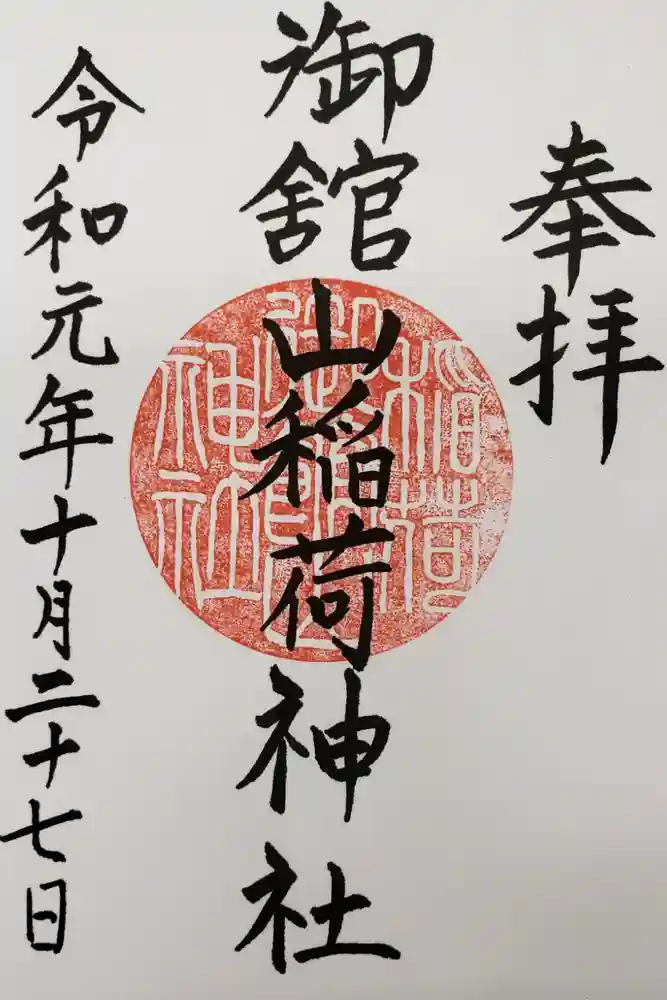 奉拝
御舘山稲荷神社
令和元年十月二十七日
稲荷
神社